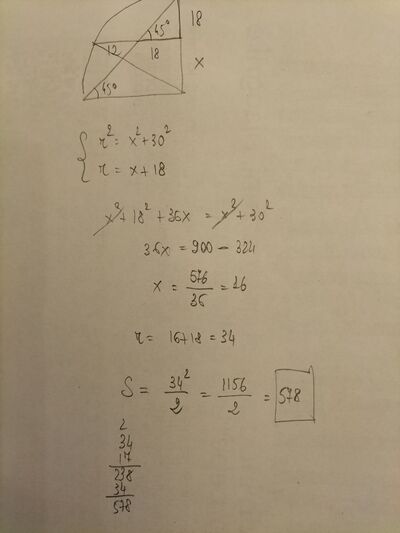 45° 18
12 18 x
45°
r² = x² + 30²
r = x + 18
x² + 18² + 36x = x² + 30²
36x = 900 - 324
x = 576/36 = 16
r = 16 + 18 = 34
S = 34²/2 = 1156/2 = 578
2
34
17
238
34
578